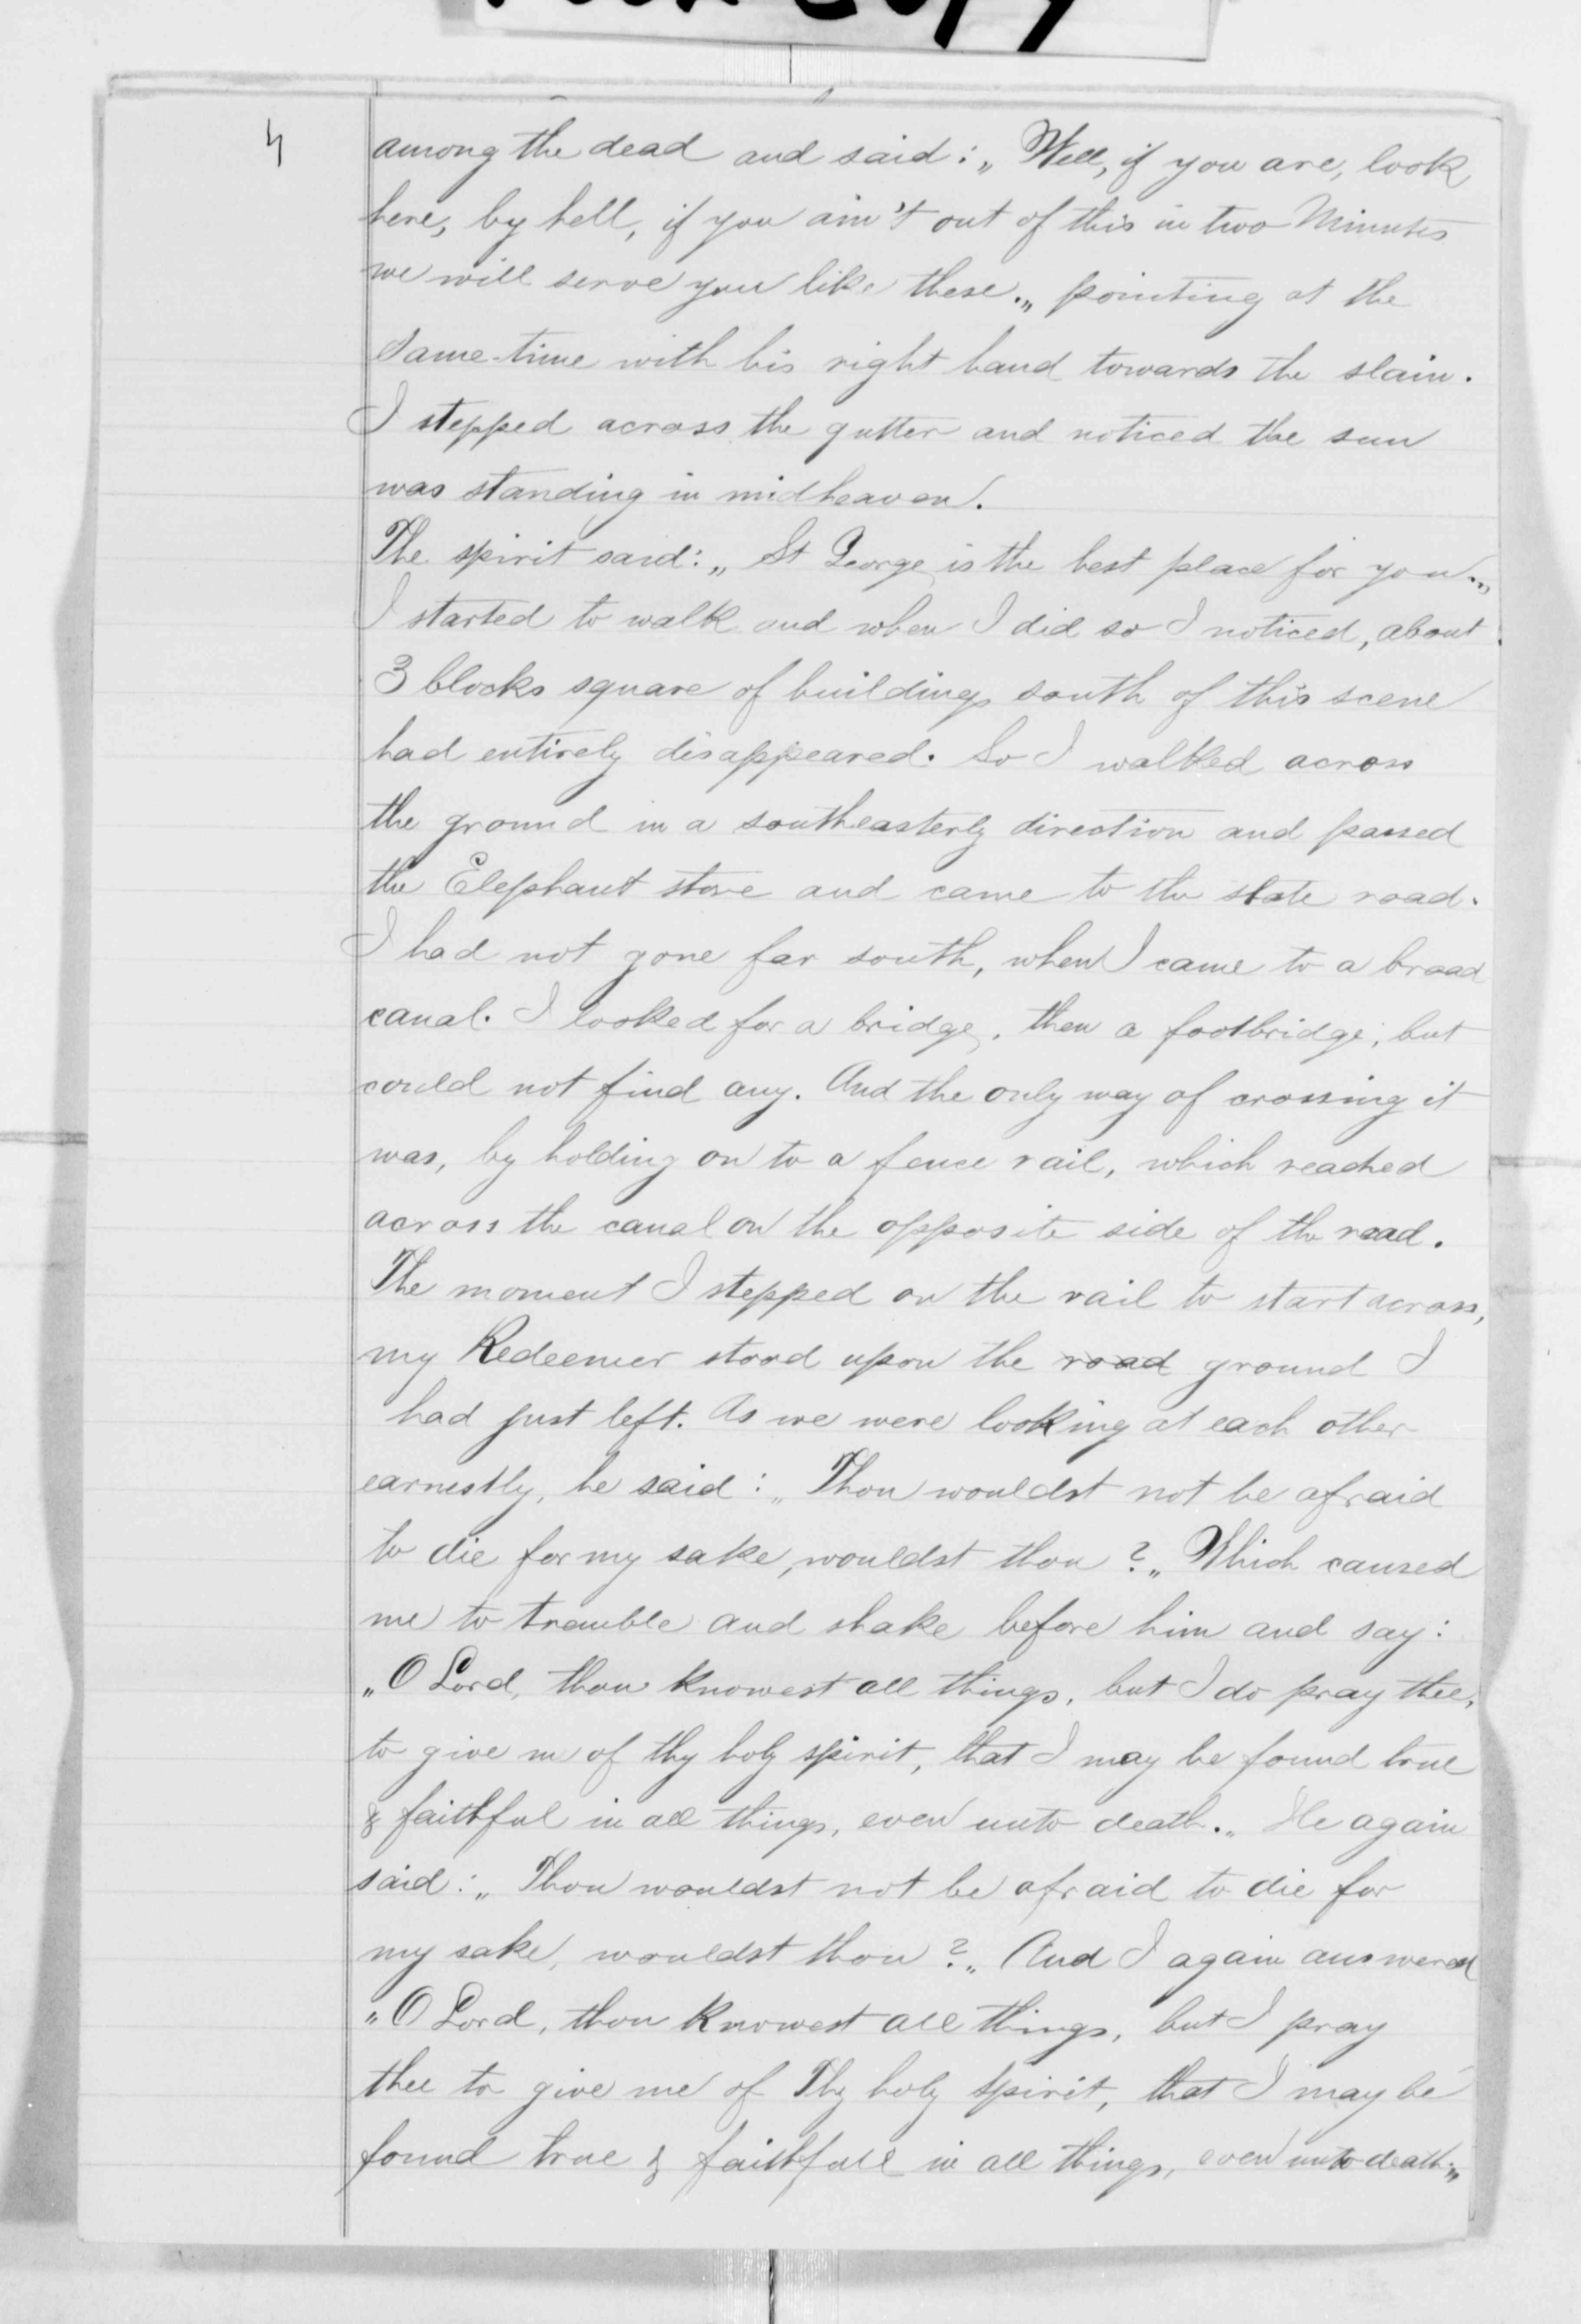 4
among the dead and said: „Well, if you are, look
here, by hell, if you ain't out of this in two Minutes
we will serve you like these.„ pointing at the
same time with his right hand towards the slain.
I stepped across the gutter and noticed the sun
was standing in midheaven.
The spirit said: „St George is the best place for you.„
I started to walk and when I did so I noticed, about
3 blocks square of buildings south of this scene
had entirely disappeared. So I walked across
the ground in a southeasterly direction and passed
the Elephant store and came to the state road.
I had not gone far south, when I came to a broad
canal. I looked for a bridge, then a footbridge, but
could not find any. And the only way of crossing it
was, by holding on to a fence rail, which reached
across the canal on the opposite side of the road.
The moment I stepped on the rail to start across,
my Redeemer stood upon the road ground I
had just left. As we were looking at each other
earnestly, he said: „Thou wouldst not be afraid
to die for my sake, wouldst thou?„ Which caused
me to tremble and shake before him and say:
„O Lord, thou knowest all things, but I do pray thee,
to give m of thy holy spirit, that I may be found true
& faithful in all things, even unto death.„ He again
said: „Thou wouldst not be afraid to die for
my sake, wouldst thou?„ And I again answered
„O Lord, thou knowest all things, but I pray
thee to give me of Thy holy spirit, that I may be
found true & faithfull in all things, even unto death.„